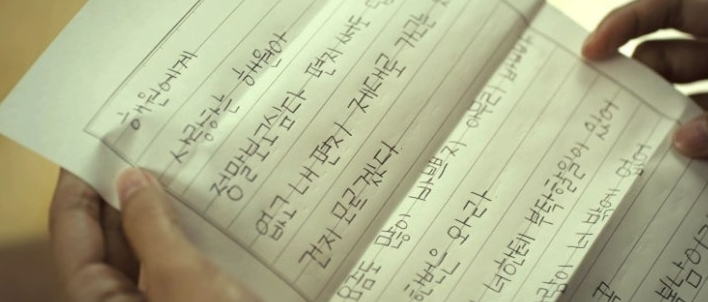 해원에게
사랑하는 해원아
정말 보고싶다 편지 써도 답
없고 내 편지 제대로 가고는
건지 모르겠다
요즘도 많이 바쁘지 아무리 바빠도
한번은 와라
너한테 부탁할일이 있어
너 밖에 없어
꼭